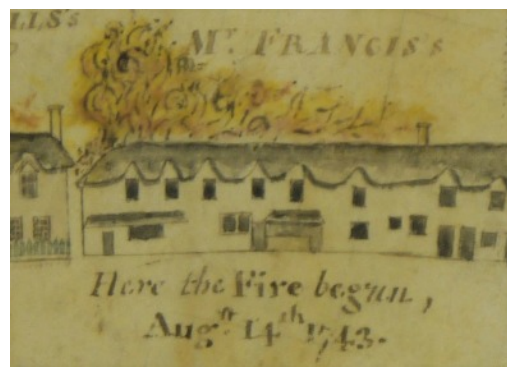 LLS's
Mr. FRANCIS's
Here the Fire begun,
Augst 14th 1743.